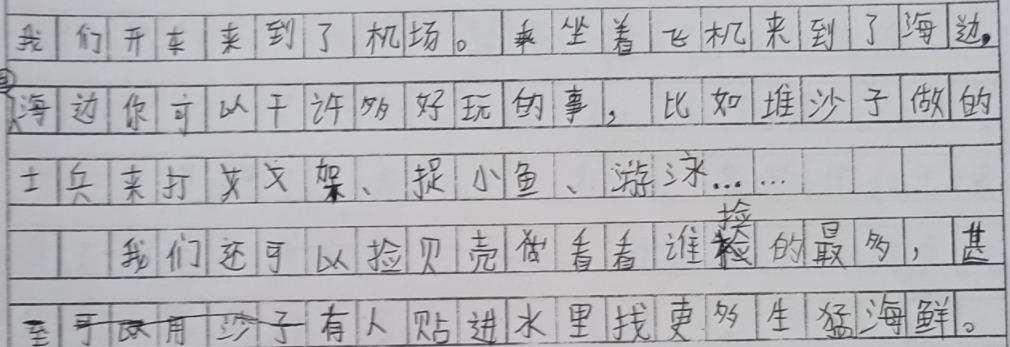 我们开车来到了机场。乘坐着飞机来到了海边,
海边你可以干许多好玩的事,比如堆沙子做的
士兵来打架、捉小鱼、游泳……
我们还可以捡贝壳做看看谁捡的最多,甚
至可以用沙子有人贴进水里找更多生猛海鲜。